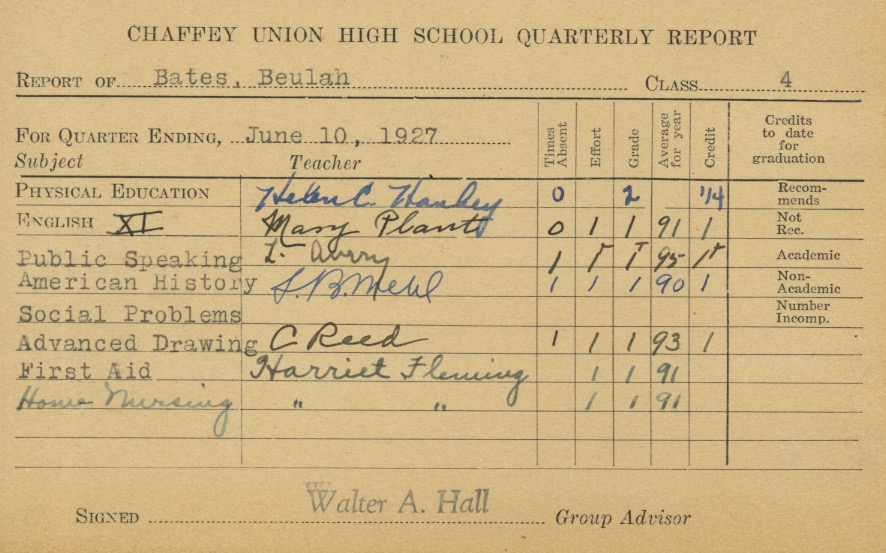 CHAFFEY UNION HIGH SCHOOL QUARTERLY REPORT
REPORT OF Bates, Beulah CLASS 4
FOR QUARTER ENDING, June 10, 1927
Subject Teacher Times Absent Effort Grade Average for year Credit Credits to date for graduation
PHYSICAL EDUCATION Helen C. 0 2 1/4 Recommends
ENGLISH XI Mary Plant 0 1 1 91 1 Not Rec.
Public Speaking L. Avery 1 1+ 1+ 95 1+ Academic
American History 1 1 1 90 1 Non-Academic
Social Problems Number Incomp.
Advanced Drawing C Reed 1 1 1 93 1
First Aid Harriet Fleming 1 1 91
Home Nursing " " 1 1 91
SIGNED Walter A. Hall Group Advisor